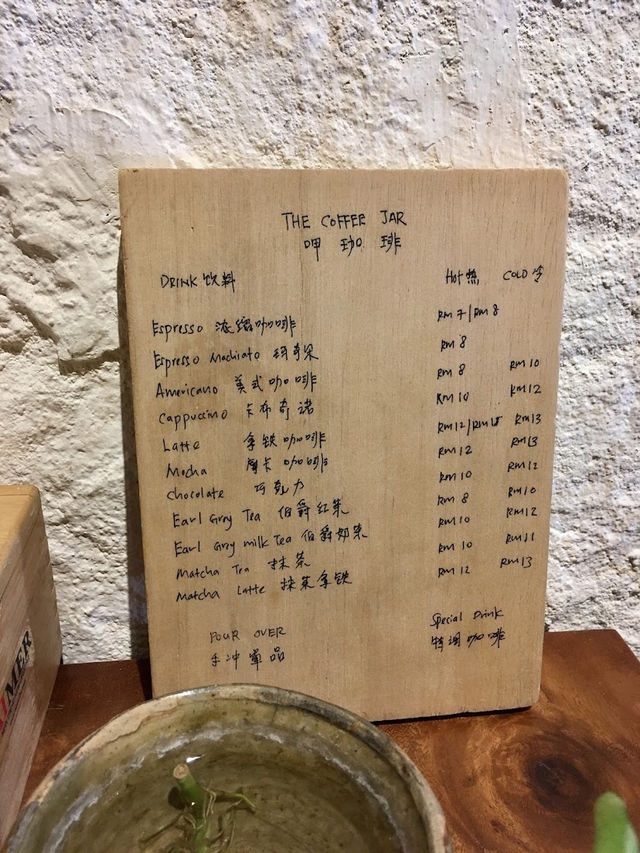 THE COFFEE JAR
呷 珈 琲
DRINK 饮料 Hot 热 COLD 冷
Espresso 浓缩咖啡 RM 7/RM 8
Espresso Machiato 玛奇朵 RM 8
Americano 美式咖啡 RM 8 RM 10
Cappuccino 卡布奇诺 RM 10 RM 12
Latte 拿铁咖啡 RM 12/RM 15 RM 13
Mocha 摩卡 咖啡 RM 12 RM 13
Chocolate 巧克力 RM 10 RM 12
Earl Grey Tea 伯爵红茶 RM 8 RM 10
Earl Grey milk Tea 伯爵奶茶 RM 10 RM 12
Matcha Tea 抹茶 RM 10 RM 11
Matcha Latte 抹茶拿铁 RM 12 RM 13
POUR OVER Special Drink
手冲單品 特调咖啡